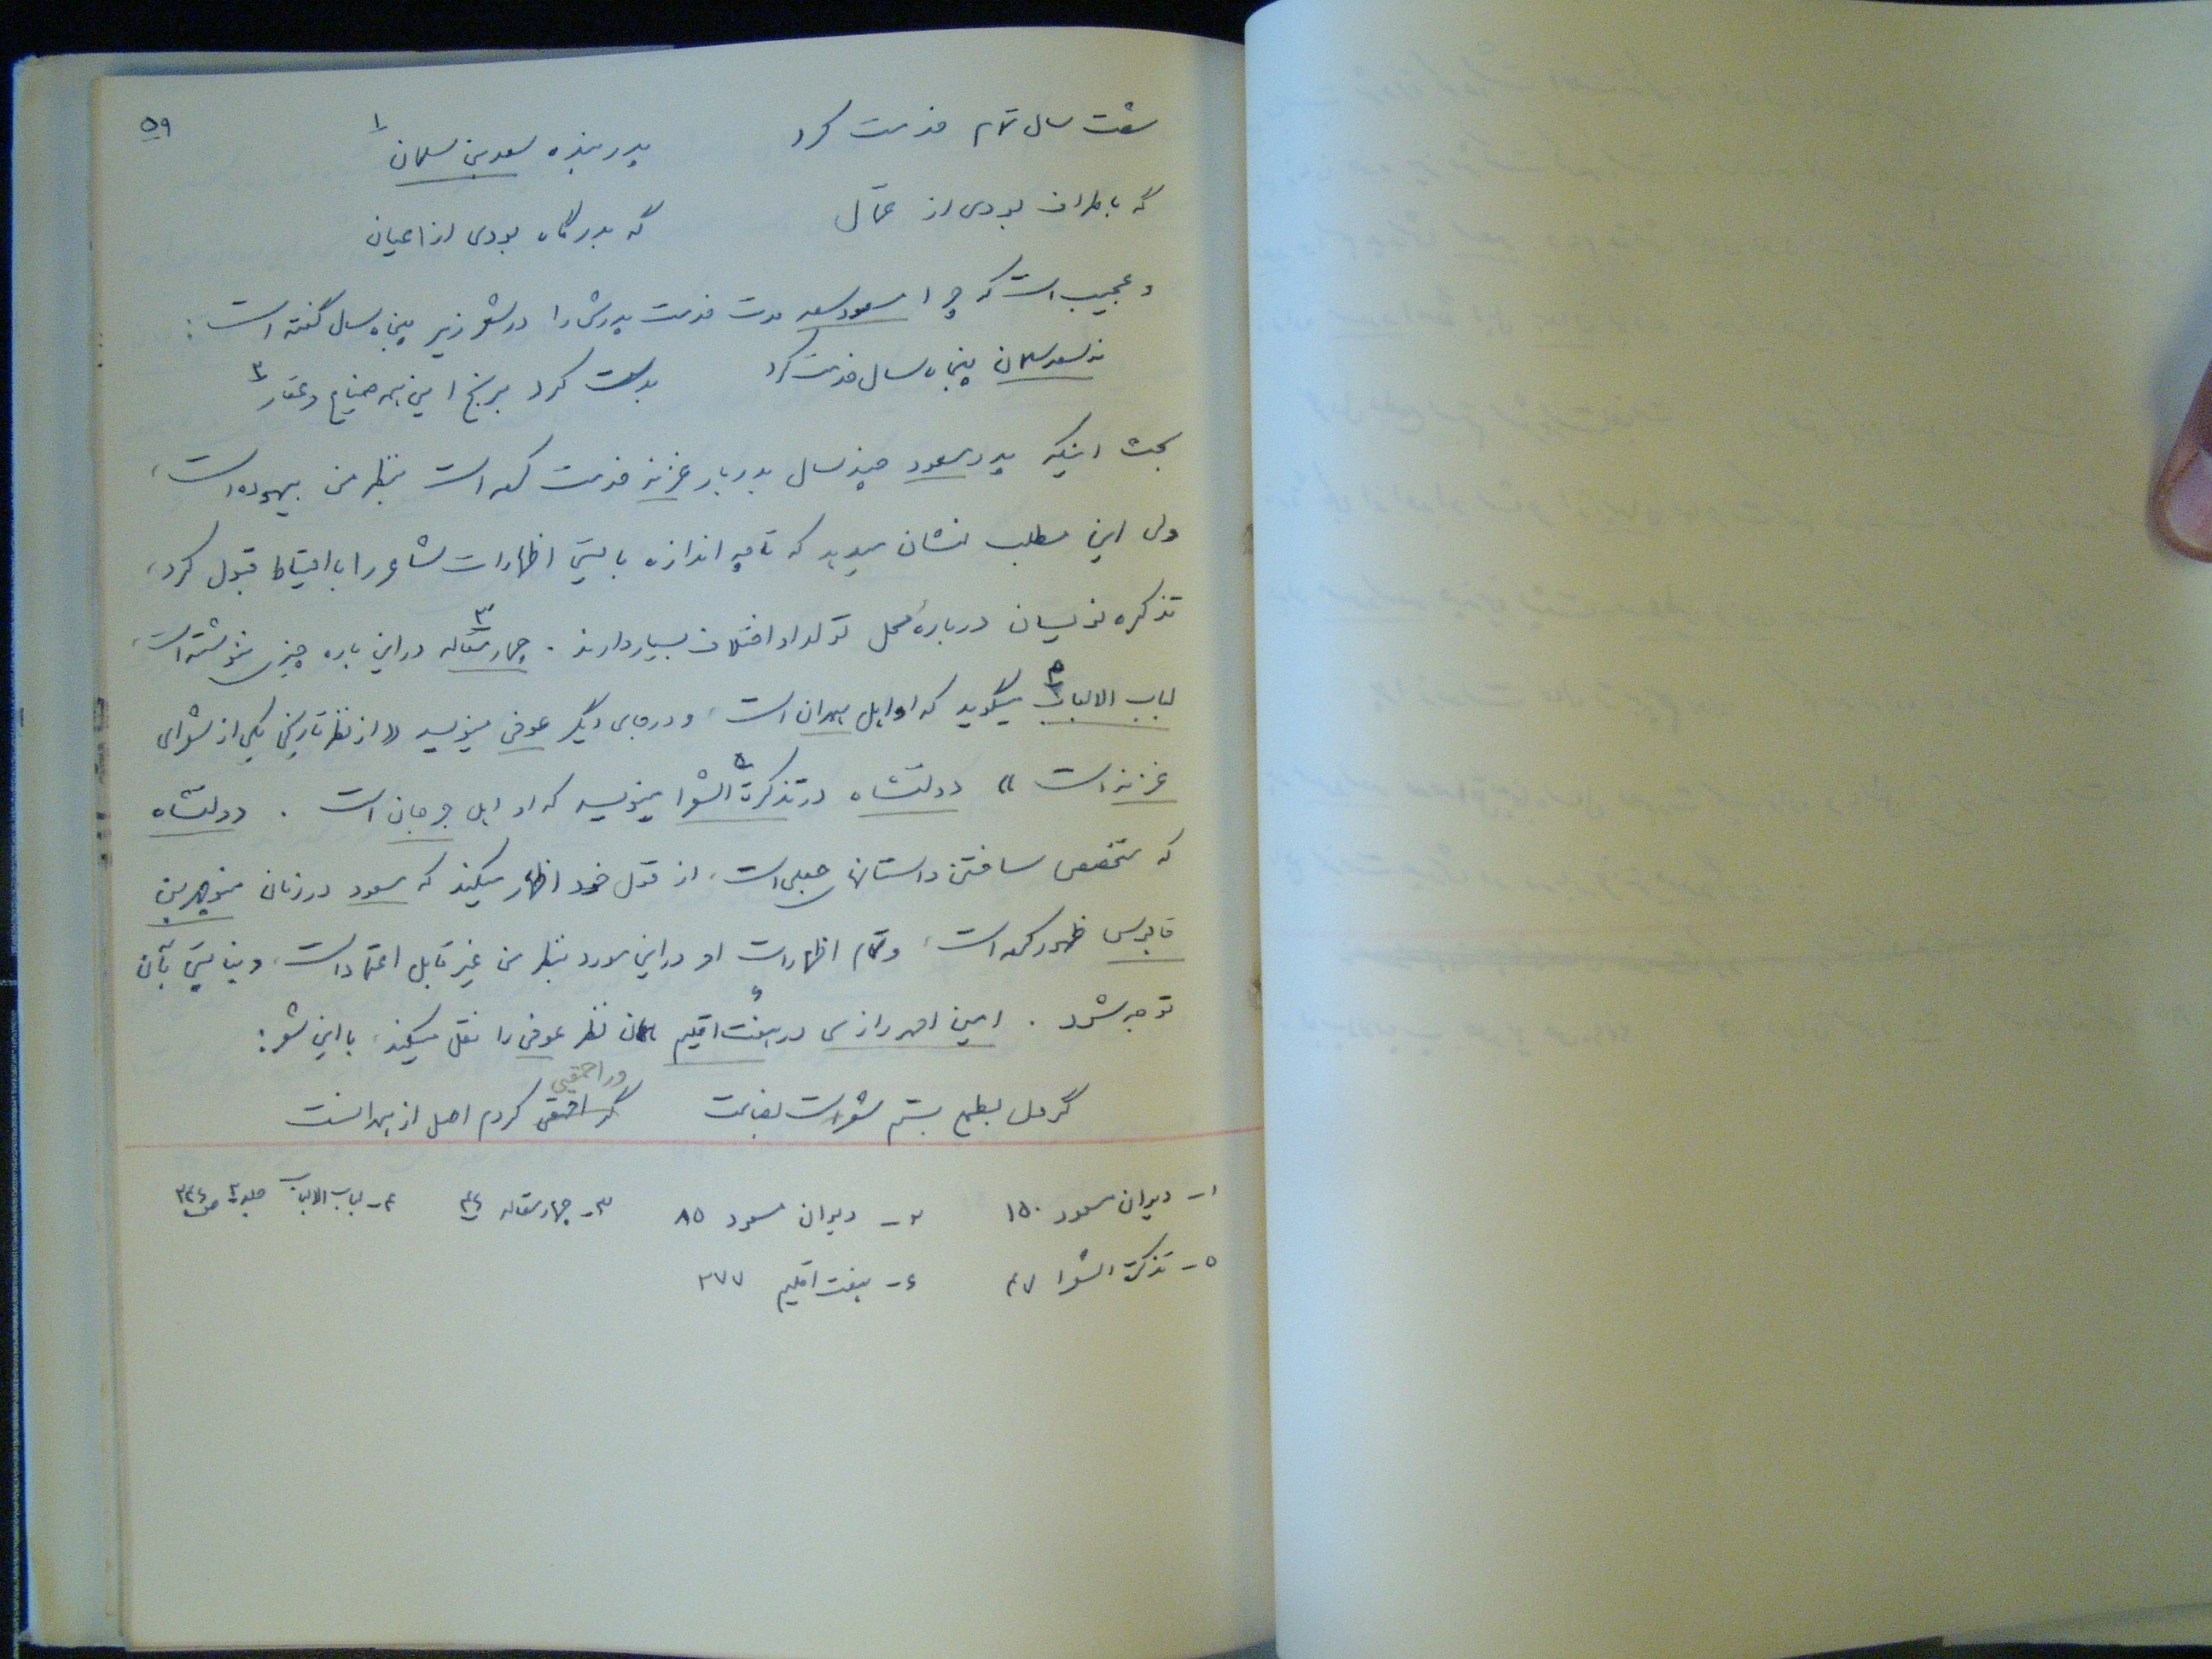 ۵۹
شصت سال تمام خدمت کرد پدر بنده سعد بن سلمان ۱
گه باطراف بودی از عمّال گه بدرگاه بودی از اعیان
و عجیب است که چرا مسعود سعد مدت خدمت پدرش را در شعر زیر پنجاه سال گفته است :
نه سعد سلمان پنجاه سال خدمت کرد بدست کرد برنج این همه ضیاع و عقار ۲
بحث اینکه پدر مسعود چند سال بدربار غزنه خدمت کرده است بنظر من بیهوده است،
ولی این مطلب نشان میدهد که تا چه اندازه بایستی اظهارات شاعر را با احتیاط قبول کرد،
تذکره نویسان دربارهٔ محل تولد او اختلاف بسیار دارند . چهار مقاله ۳ در این باره چیزی ننوشته است،
لباب الالباب ۴ میگوید که او اهل همدان است، و در جای دیگر عوفی مینویسد «از نظر تاریخی یکی از شعرای
غزنه است» دولتشاه در تذکرة الشعرا ۵ مینویسد که او اهل جرجان است . دولتشاه
که متخصص ساختن داستانهای جعلی است، از قول خود اظهار میکند که مسعود در زمان منوچهر بن
قابوس ظهور کرده است، و تمام اظهارات او در این مورد بنظر من غیر قابل اعتماد است، و نبایستی بآن
توجه شود . امین احمد رازی در هفت اقلیم ۶ همان نظر عوفی را نقل میکند، با این شعر :
ور احمقیی
گر دل بطمع بستم شعر است بضاعت گر احمقی کردم اصل از همدانست
۱- دیوان مسعود ۱۵۰ ۲- دیوان مسعود ۸۵ ۳- چهار مقاله ۴- لباب الالباب جلد ۲ ص ۲۴۶
۵- تذکرة الشعرا ۴۷ ۶- هفت اقلیم ۲۷۷